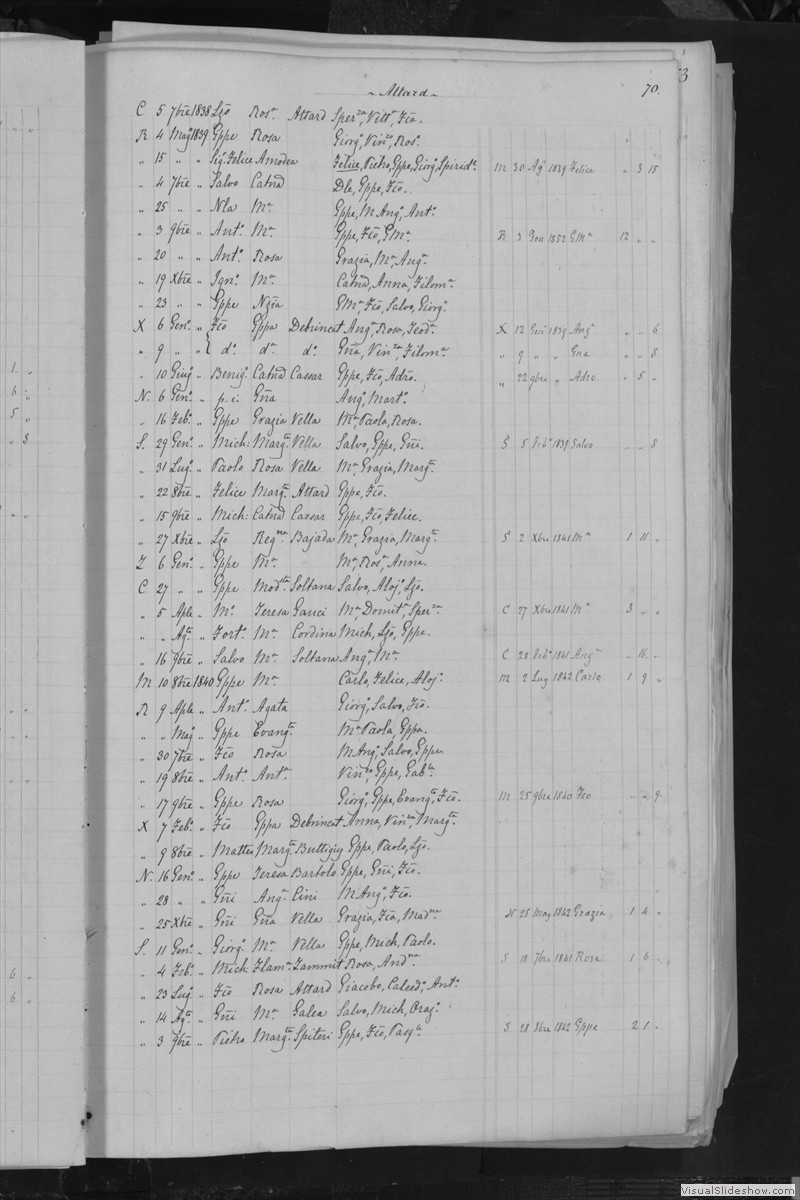 ~ Attard ~ 70. 3
C 5 7bre 1838 Lzo Rosa Attard Sperza, Vitta, Fca.
R 4 Mago 1839 Gppe Rosa Giorgo, Vinzo, Roso.
„ 15 „ „ Sigr Felice Amodea Felice, Pietro, Gppe, Giorgo, Spirido. M 30 Ago 1839 Felice „ 3 15
„ 4 7bre „ Salvo Catnd Dle, Gppe, Fco.
„ 25 „ „ Nla Ma Gppe, M Ango, Anto.
„ 3 9bre „ Anto Ma Gppe, Fco, GMa. R 3 Gen 1852 GMa 12 „ „
„ 20 „ „ Anto Rosa Grazia, Ma, Anga.
„ 19 Xbre „ Igno Ma Catnd, Anna, Filoma.
„ 23 „ „ Gppe Nzia GMa, Fco, Salvo, Giorgo.
X 6 Geno „ Fco Gppa Debrincat Anga, Rosa, Teoda. X 12 Gen 1839 Anga „ „ 6
„ 9 „ „ { do do do Gna, Vinza, Filoma. „ 9 „ „ Gna „ „ 8
„ 10 Giugo „ Benigo Catnd Cassar Gppe, Fco, Adro. „ 22 9bre „ Adro „ 5 „
N. 6 Geno „ p. i. Gna Ango, Marto.
„ 16 Febo „ Gppe Grazia Vella Ma, Paola, Rosa.
S. 29 Geno „ Mich: Marga Vella Salvo, Gppe, Gni. S 5 Febo 1839 Salvo „ „ 8
„ 31 Lugo „ Paolo Rosa Vella Ma, Grazia, Marga.
„ 22 8bre „ Felice Marga Attard Gppe, Fco.
„ 15 9bre „ Mich: Catnd Cassar Gppe, Fco, Felice.
„ 27 Xbre „ Lzo Regna Bajada Ma, Grazia, Marga. S 2 Xbre 1841 Ma 1 11 „
Z 6 Geno „ Gppe Ma Ma, Rosa, Anna.
C 27 „ „ Gppe Modta Soltana Salvo, Alojo, Lzo.
„ 5 Aple „ Mo Teresa Gauci Ma, Domita, Sperza. C 27 Xbre 1841 Ma 3 „ „
„ „ Ago „ Forto Ma Cordina Mich, Lzo, Gppe.
„ 16 9bre „ Salvo Ma Soltana Anga, Ma. C 28 Febo 1841 Anga „ 16 „
M 10 8bre 1840 Gppe Ma Carlo, Felice, Alojo. M 2 Lug 1842 Carlo 1 9 „
R 9 Aple „ Anto Agata Giorgo, Salvo, Fco.
„ „ Mago „ Gppe Evangta Ma Paola, Gppa.
„ 30 7bre „ Fco Rosa M Ango, Salvo, Gppe
„ 19 8bre „ Anto Anta Vinzo, Gppe, Gable.
„ 17 9bre „ Gppe Rosa Giorgo, Gppe, Evangta, Fco. M 25 9bre 1840 Fco „ „ 9
X 7 Febo „ Fco Gppa Debrincat Anna, Vinza, Marga.
„ 9 8bre „ Matteo Marga Buttigig Gppe, Paolo, Lzo.
N. 16 Geno „ Gppe Teresa Bartolo Gppe, Gni, Fco.
„ 28 „ „ Gni Anga Cini M Ango, Fco.
„ 25 Xbre „ Gni Gna Vella Grazia, Fca, Madna. N 25 Mag 1842 Grazia 1 4 „
S. 11 Geno „ Giorgo Ma Vella Gppe, Mich, Paolo.
„ 4 Febo „ Mich: Flama Zammit Rosa, Andna. S 18 7bre 1841 Rosa 1 6 „
„ 23 Lugo „ Fco Rosa Attard Giacobo, Calcedo, Anto.
„ 14 Ago „ Gni Ma Galea Salvo, Mich, Orazo.
„ 3 9bre „ Pietro Marga Spiteri Gppe, Fco, Pasqle. S 28 1842 Gppe 2 1 „
VisualSlideshow.com